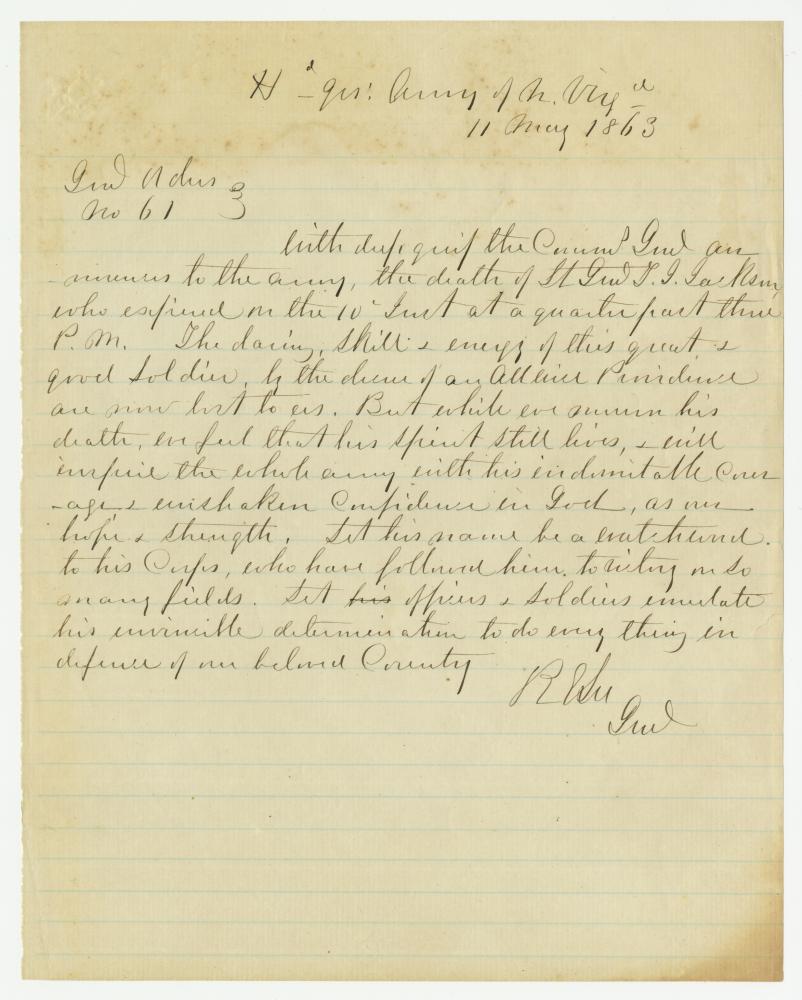 Hd qrs: Army of N. Virga
11 May 1863
Genl Orders
No 61
With deep grief the Commd Genl an
-nounces to the army, the death of Lt Genl T. J. Jackson,
who expired on the 10' Inst at a quarter past three
P. M. The daring, skill & energy of this great &
good soldier, by the decree of an Allwise Providence
are now lost to us. But while we mourn his
death, we feel that his spirit still lives, & will
inspire the whole army with his indomitable Cour
-age & unshaken Confidence in God, as our
hope & strength. Let his name be a watchword
to his Corps, who have followed him to victory on so
many fields. Let his officers & soldiers emulate
his invincible determination to do every thing in
defence of our beloved Country
R E Lee
Genl